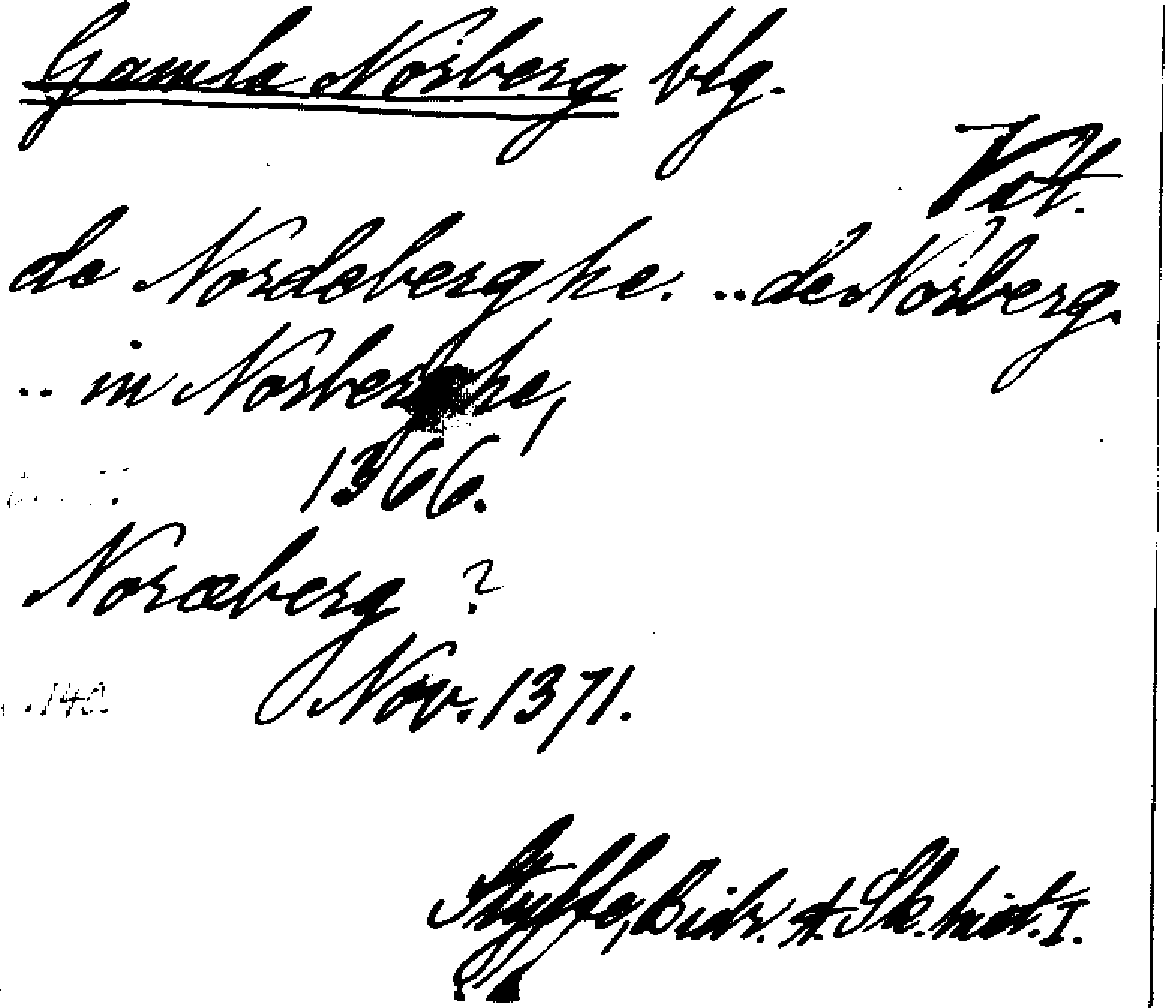 Gamla Norberg blg.
Vstt.
de Nordeberghe. .. de Norberg.
.. in Norberghe,
1366.
Noræberg ?
Nov. 1371.
140
Styffe, Bidr. t. Sk. hist. I.